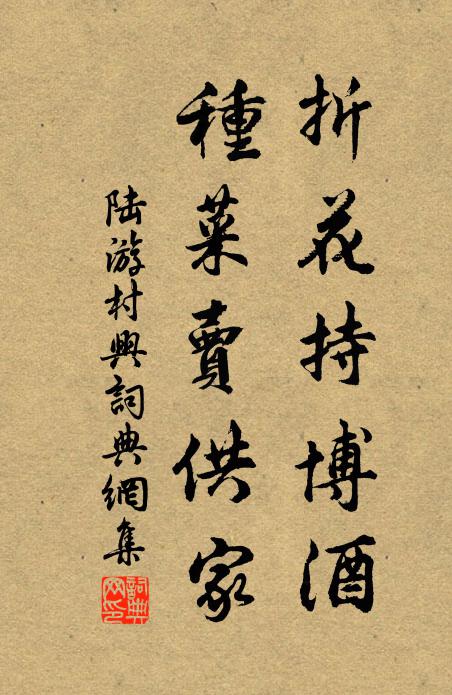 折花持博酒
種菜賣供家
陆游村興詞典網集
詞典网印